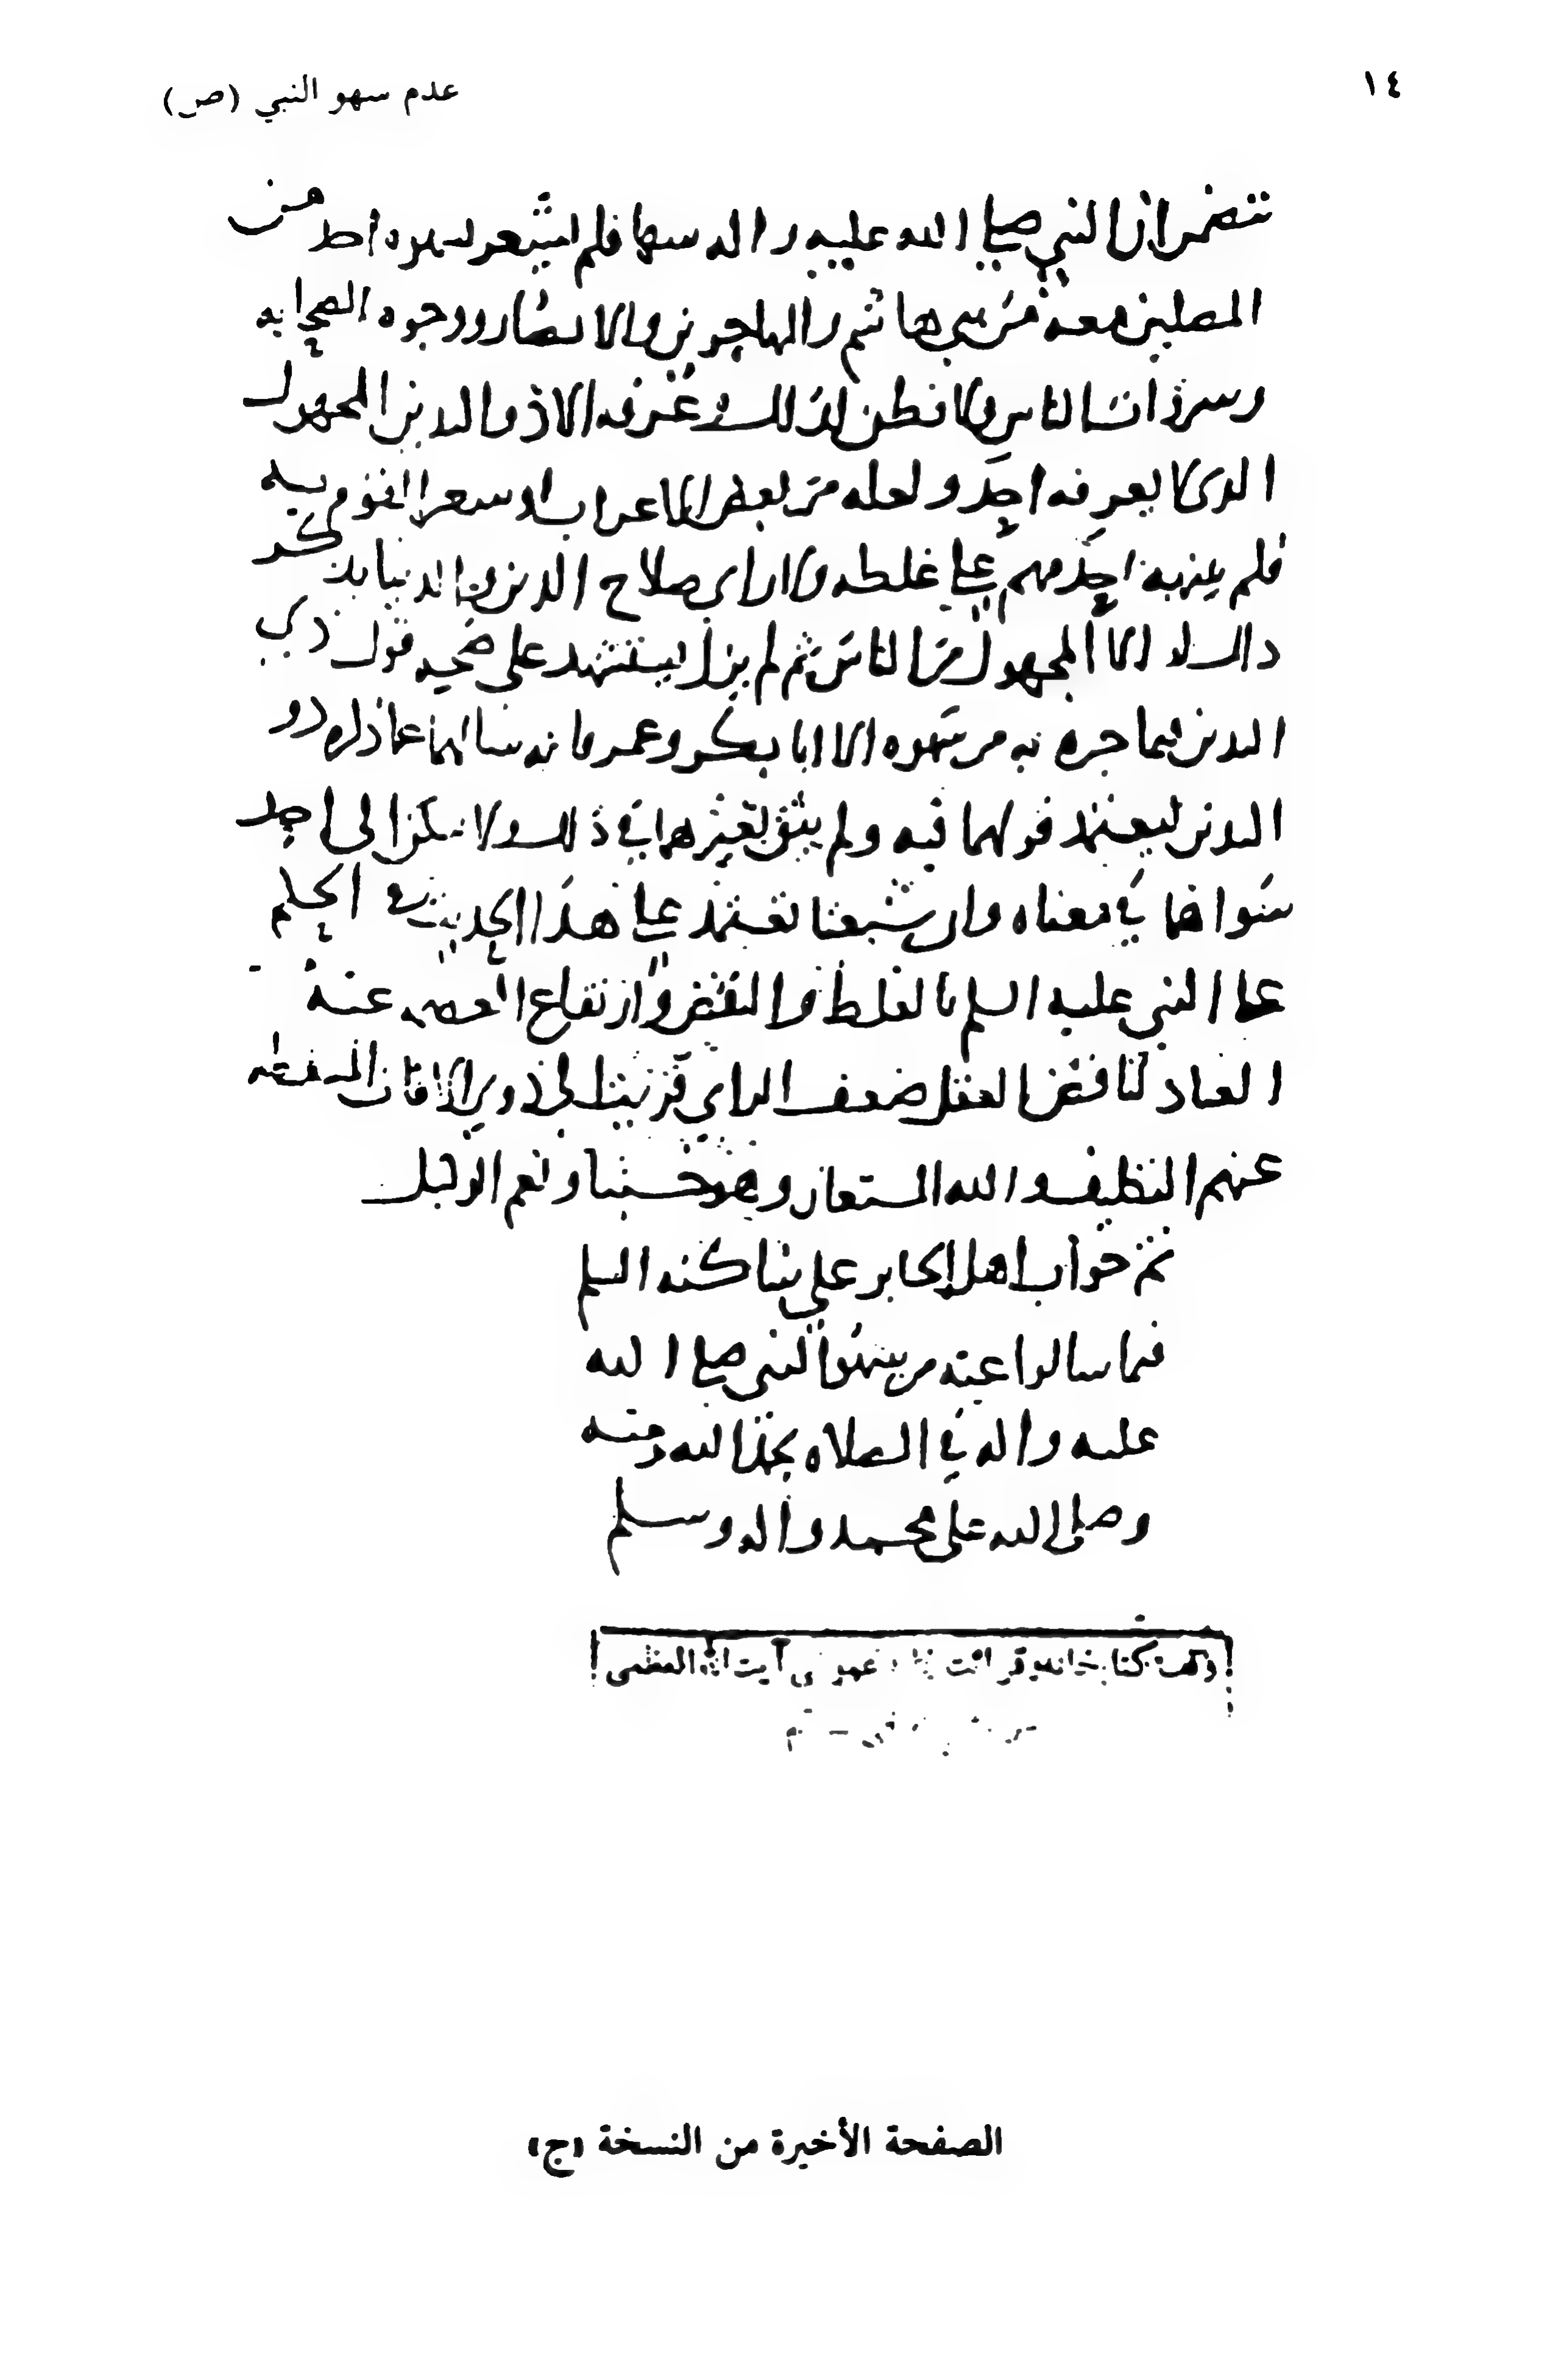 ١٤
عدم سهو النبي (ص)
تتضمن ان النبي صلى الله عليه واله سها فلم يشعر بسهوه احد من
المصلين معه من بني هاشم والمهاجرين والانصار ووجوه الصحابه
وسراة الناس ولا فطن لذلك وعرفه الا ذو اليدين المجهول
الذي لا يعرفه احد ولعله من بعض الاعراب او شعر القوم به
فلم ينبهه احد منهم على غلطه ولا راى صلاح الدين والدنيا بذكر
ذلك له الا المجهول من الناس ثم لم يزل يستشهد على صحه قول ذي
اليدين فيما خبره به من سهوه الا ابا بكر وعمر فانه سالهما عما ذكره ذو
اليدين ليعتمد قولهما فيه ولم يثق بغيرهما في ذلك ولا سكن الى احد
سواهما في معناه وان شيعيا يعتمد على هذا الحديث في الحكم
على النبي عليه السلم بالغلط والنقص وارتفاع العصمه عنه من
العباد لناقص العقل ضعيف الراي قريب الى ذوي الافات المسقطه
عنهم التكليف والله المستعان وهو حسبنا ونعم الوكيل
تم جواب اهل الحاير على ساكنه السلم
فيما سالوا عنه من سهو النبي صلى الله
عليه واله في الصلاه بحمد الله ومنه
وصلى الله على محمد واله وسلم
كتابخانه و قرائت خانه عمومى آيت الله العظمى
الصفحة الأخيرة من النسخة (ج)